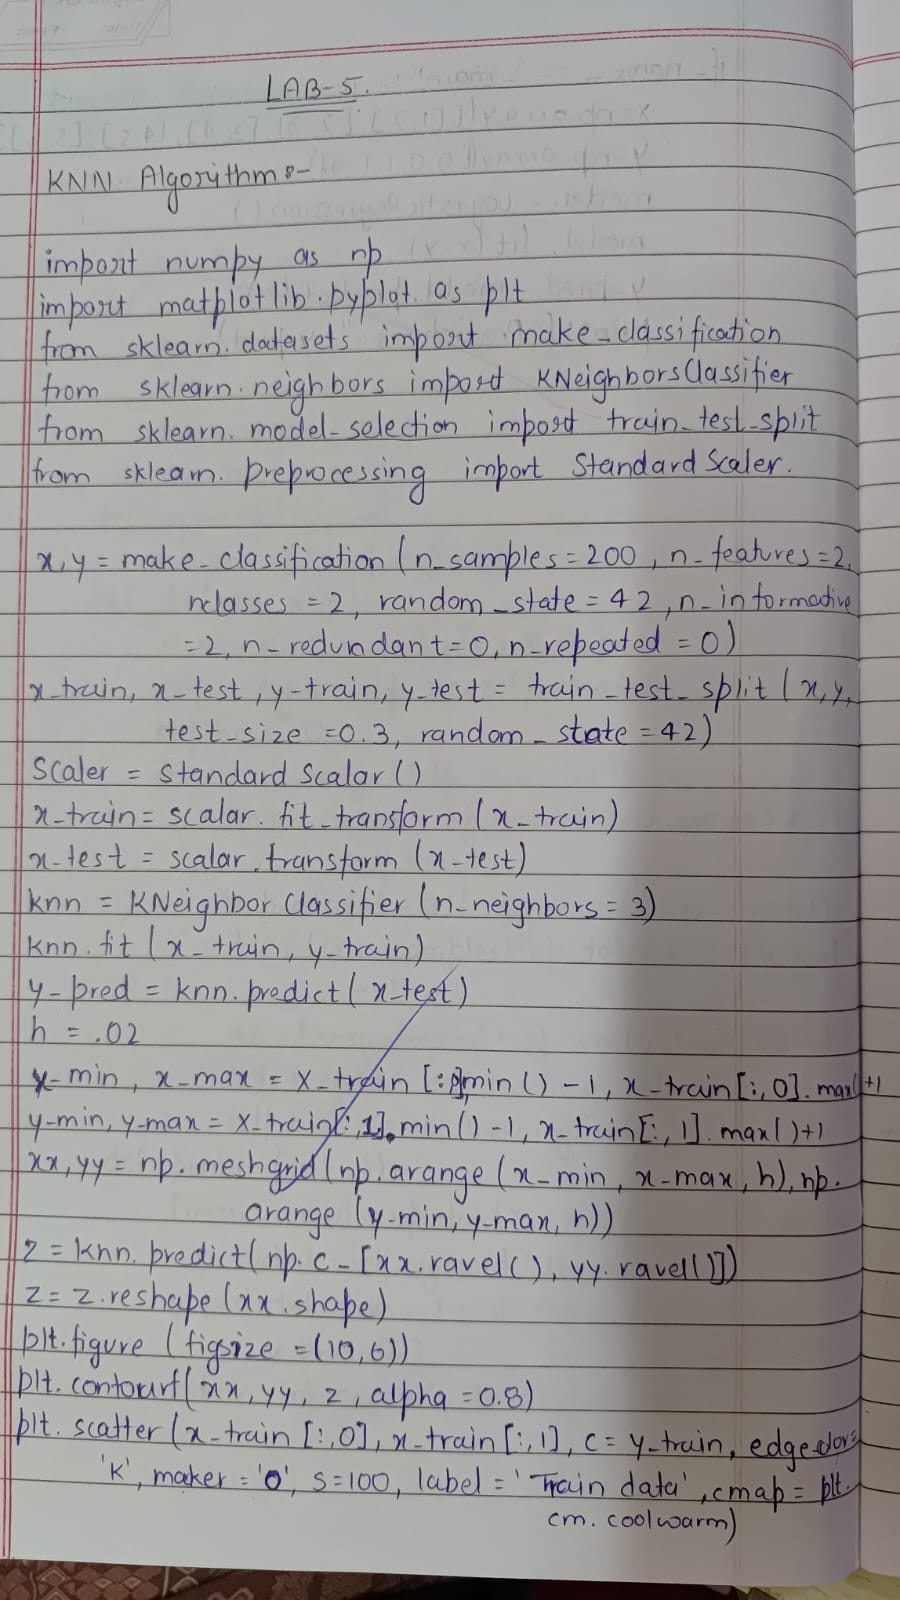 LAB-5.
KNN Algorithm :-
import numpy as np
import matplotlib.pyplot as plt
from sklearn.datasets import make_classification
from sklearn.neighbors import KNeighborsClassifier
from sklearn.model_selection import train_test_split
from sklearn.preprocessing import Standard Scaler.
x,y = make_classification (n_samples=200, n_features=2,
nclasses = 2, random_state = 42, n_informative
=2, n_redundant=0, n_repeated = 0)
x_train, x_test, y_train, y_test = train_test_split (x,y,
test_size =0.3, random_state = 42)
Scaler = standard Scalar()
x_train = scalar.fit_transform (x_train)
x_test = scalar.transform (x_test)
knn = KNeighbor Classifier (n_neighbors = 3)
knn.fit (x_train, y_train)
y_pred = knn.predict( x_test)
h = .02
x_min, x_max = X_train [:,0]min () -1, x_train[:, 0].max()+1
y_min, y_max = X_train[:,1].min() -1, x_train[:, 1].max()+1
xx,yy = np.meshgrid (np.arange (x_min, x_max, h), np.
arange (y_min, y_max, h))
z = knn.predict( np.c_[xx.ravel(), yy.ravel()])
z = z.reshape (xx.shape)
plt.figure ( figsize =(10,6))
plt.contourf( xx, yy, z, alpha =0.8)
plt.scatter (x_train [:,0], x_train [:,1], c = y_train, edgecolor=
'k', maker = 'o', s=100, label = 'Train data', cmap = plt.
cm.coolwarm)